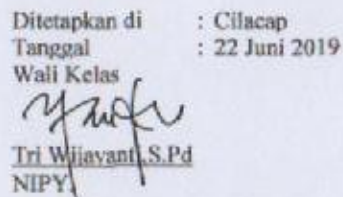 Ditetapkan di : Cilacap
Tanggal : 22 Juni 2019
Wali Kelas
Tri Wijayanti, S.Pd
NIPY.